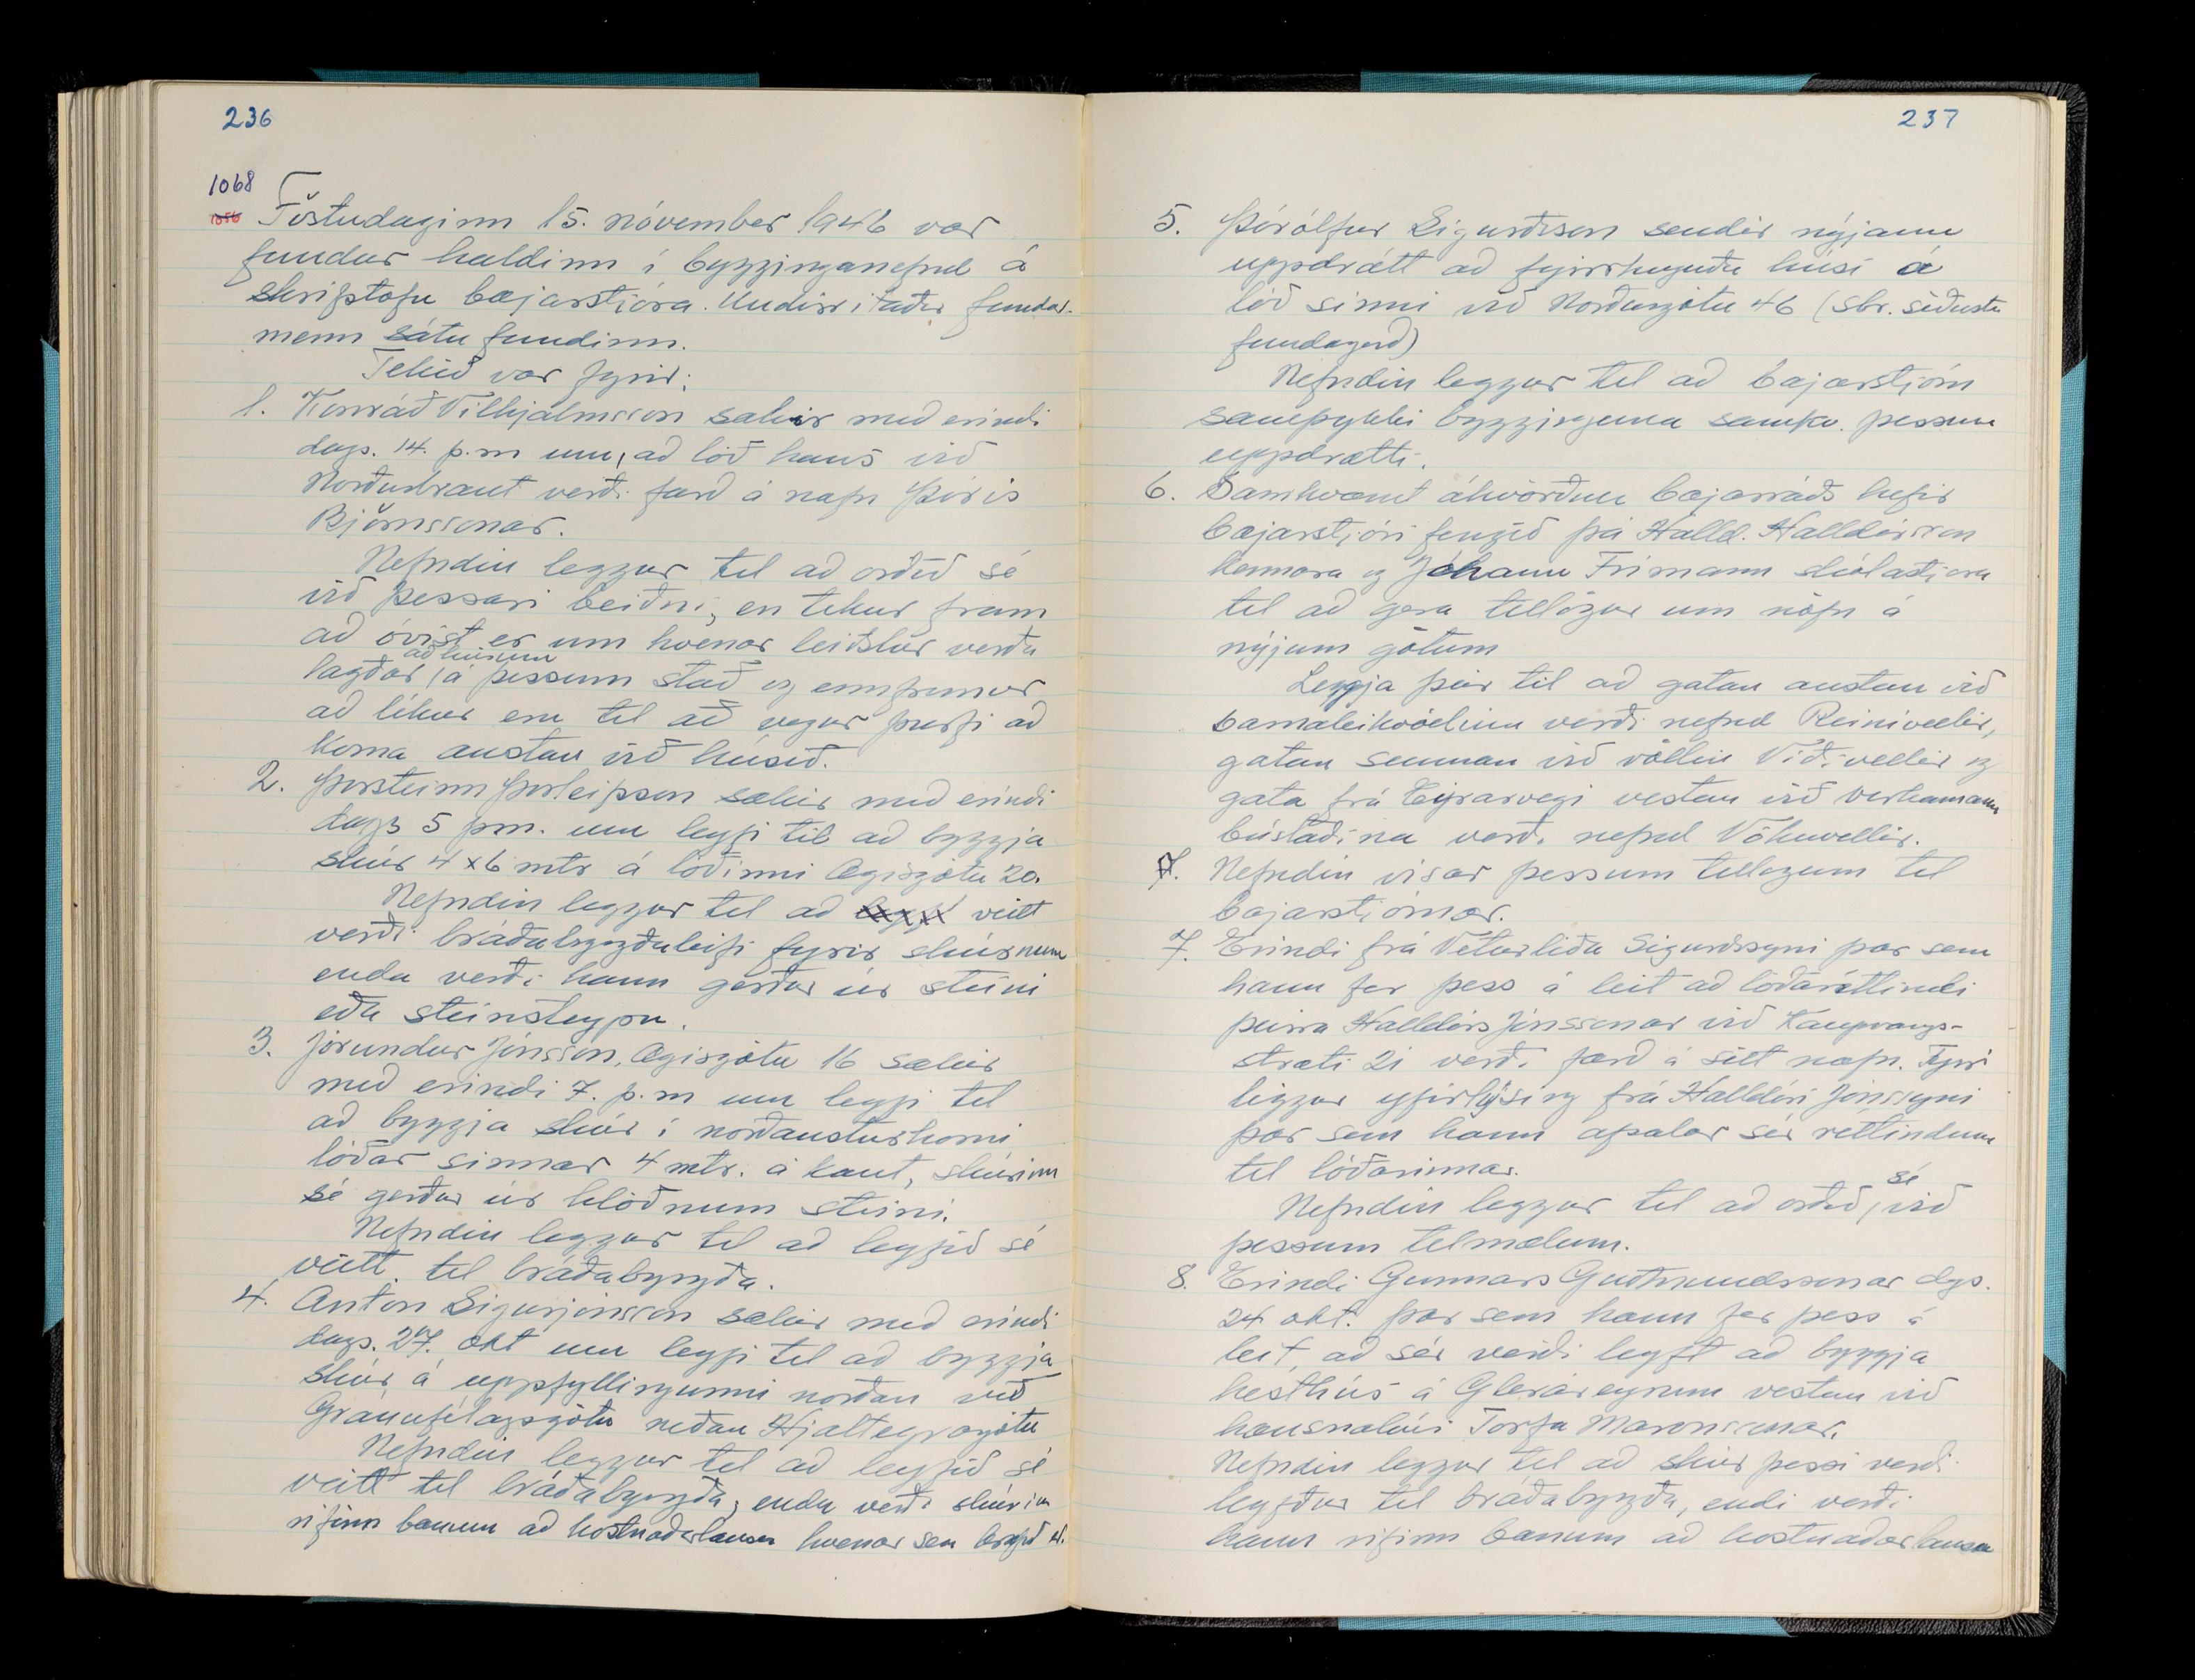 236
1068
1056
Föstudaginn 15. nóvember 1946 var
fundur haldinn í bygginganefnd á
skrifstofu bæjarstjóra. Undirritaðir fundar-
menn sátu fundinn.
Tekið var fyrir:
1. Konráð Vilhjálmsson sækir með erindi
dags. 14. þ.m um, að lóð hans við
Norðurbraut verði færð á nafn Þóris
Björnssonar.
Nefndin leggur til að orðið sé
við þessari beiðni, en tekur fram
að óvíst er um hvenær leiðslur verða
að húsinu
lagðar, á þessum stað og ennfremur
að líkur eru til að vegur þurfi að
koma austan við húsið.
2. Þorsteinn Þorleifsson sækir með erindi
dags 5 þm. um leyfi til að byggja
skúr 4 x 6 mtr á lóðinni Ægisgötu 20.
Nefndin leggur til að leyfi veitt
verði bráðabyrgðaleyfi fyrir skúrnum
enda verði hann gerður úr steini
eða steinsteypu.
3. Jörundur Jónsson, Ægisgötu 16 sækir
með erindi 7. þ.m um leyfi til
að byggja skúr í norðausturhorni
lóðar sinnar 4 mtr. á kant, skúrinn
sé gerður úr hlöðnum steini.
Nefndin leggur til að leyfið sé
veitt til bráðabyrgða.
4. Anton Sigurjónsson sækir með erindi
dags. 27. okt um leyfi til að byggja
skúr á uppfyllingunni norðan við
Gránufélagsgötu neðan Hjalteyrargötu
Nefndin leggur til að leyfið sé
veitt til bráðabyrgða, enda verði skúrinn
rifinn bænum að kostnaðarlausu hvenær sem krafist er.
237
5. Þórólfur Sigurðsson sendir nýjann
uppdrátt að fyrirhuguðu húsi á
lóð sinni við Norðurgötu 46 (sbr. síðustu
fundagerð)
Nefndin leggur til að bæjarstjórn
samþykki bygginguna samkv. þessum
uppdrætti.
6. Samkvæmt ákvörðun bæjarráðs hefir
bæjarstjóri fengið þá Halld. Halldórsson
kennara og Jóhann Frímann skólastjóra
til að gera tillögur um nöfn á
nýjum götum
Leggja þeir til að gatan austan við
barnaleikvöllinn verði nefnd Reinivellir,
gatan sunnan við völlin Víðivellir og
gata frá Eyrarvegi vestan við verkamanna
bústaðina verði nefnd Vökuvellir.
7. Nefndin vísar þessum tillögum til
bæjarstjórnar.
7. Erindi frá Veturliða Sigurðssyni þar sem
hann fer þess á leit að lóðaréttindi
þeirra Halldórs Jónssonar við Kaupvangs-
stræti 21 verði færð á sitt nafn. Fyrir
liggur yfirlýsing frá Halldóri Jónssyni
þar sem hann afsalar sér réttindum
til lóðarinnar.
sé
Nefndin leggur til að orðið, við
þessum tilmælum.
8. Erindi Gunnars Guðmundssonar dgs.
24 okt. þar sem hann fer þess á
leit, að sér verði leyft að byggja
hesthús á Gleráreyrum vestan við
hænsnahús Torfa Maronssonar.
Nefndin leggur til að skúr þessi verði
leyfður til bráðabyrgða, endi verði
hann rifinn bænum að kostnaðarlausu